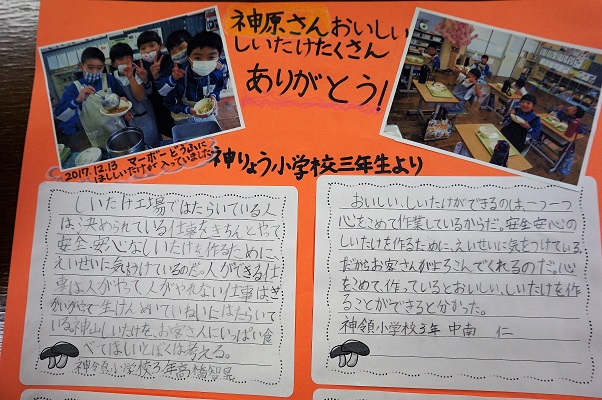 神原さんおいしい
しいたけたくさん
ありがとう!
2017.12.13 マーボーどうふに
ほししいたけが入っていました
神りょう小学校三年生より
しいたけ工場ではたらいている人
は、決められている仕事をきちんとやって
安全、安心なしいたけを作るために、
えいせいに気をつけているのだ。人ができる仕
事は人がやって人がやれない仕事はき
かいがやて生けんめいていねいにはたらいて
いる。神山しいたけを、お客さんにいっぱい食
べてほしいとぼくは考える。
神領小学校3年高橋智
おいしい、しいたけができるのは、一つ一つ
心をこめて作業しているからだ。安全安心の
しいたけを作るために、えいせいに気をつけている。
だからお客さんがよろこんでくれるのだ。心
をこめて、作っているとおいしい、しいたけを作
ることができると分かった。
神領小学校3年 中南 仁